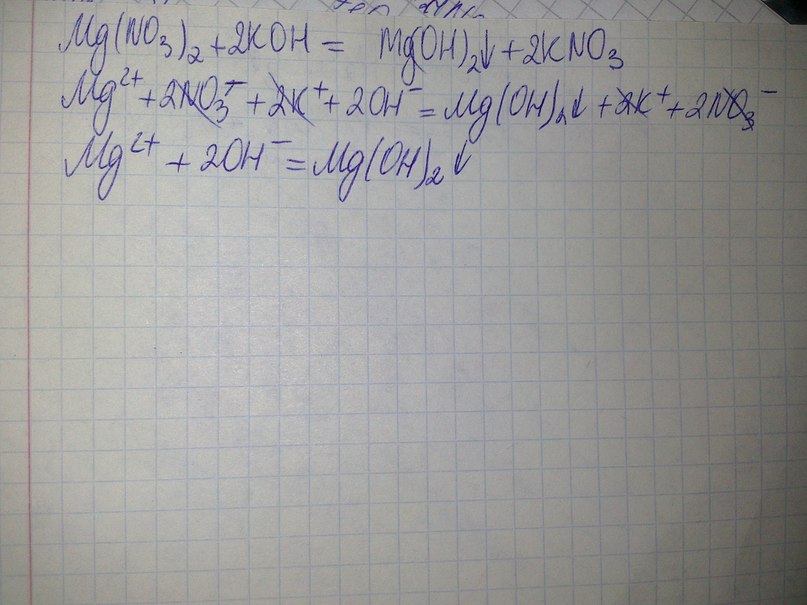 Mg(NO₃)₂ + 2KOH = Mg(OH)₂↓ + 2KNO₃
Mg²⁺ + 2NO₃⁻ + 2K⁺ + 2OH⁻ = Mg(OH)₂↓ + 2K⁺ + 2NO₃⁻
Mg²⁺ + 2OH⁻ = Mg(OH)₂↓